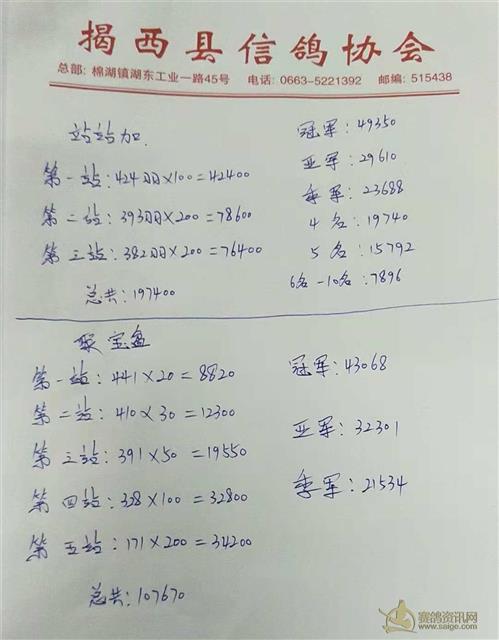 揭西县信鸽协会
总部: 棉湖镇湖东工业一路45号 电话: 0663-5221392 邮编: 515438
站站加.
第一站:424羽×100=42400
第二站:393羽×200=78600
第三站:382羽×200=76400
总共:197400
冠军:49350
亚军:29610
季军:23688
4名:19740
5名:15792
6名-10名:7896
聚宝盆
第一站:441×20=8820
第二站:410×30=12300
第三站:391×50=19550
第四站:328×100=32800
第五站:171×200=34200
总共:107670
冠军:43068
亚军:32301
季军:21534
赛鸽资讯网
www.saige.com